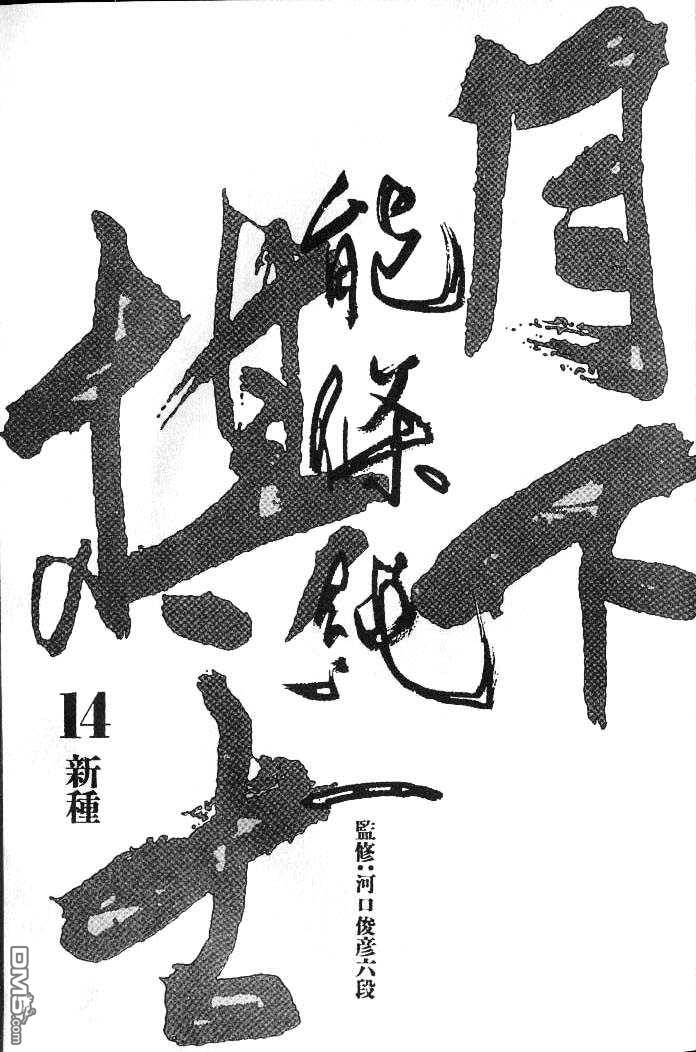 月下
棋士
能條純一
14
新種
監修:河口俊彦六段
DM5.com